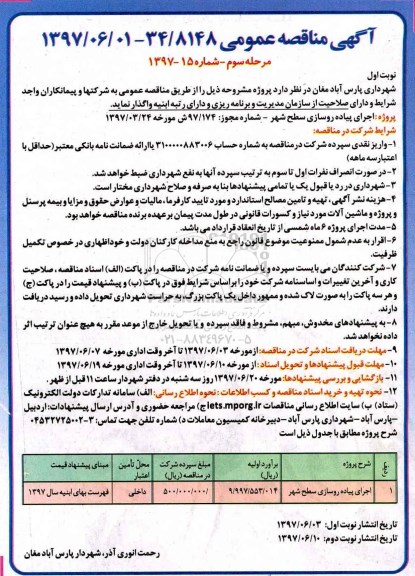 آگهی مناقصه عمومی ۳۴/۸۱۴۸-۱۳۹۷/۰۶/۰۱
مرحله سوم -شماره ۱۵-۱۳۹۷
نوبت اول
شهرداری پارس آباد مغان در نظر دارد پروژه مشروحه ذیل را از طریق مناقصه عمومی به شرکتها و پیمانکاران واجد
شرایط و دارای صلاحیت از سازمان مدیریت و برنامه ریزی و دارای رتبه ابنیه واگذار نماید.
پروژه: اجرای پیاده روسازی سطح شهر - شماره مجوز: ۹۷/۱۷۴ش مورخه ۱۳۹۷/۰۳/۲۴
شرایط شرکت در مناقصه:
۱-واریز نقدی سپرده شرکت در مناقصه به شماره حساب ۳۱۰۰۰۰۰۸۸۳۰۰۶ یا ارائه ضمانت نامه بانکی معتبر (حداقل با
اعتبار سه ماهه)
۲-در صورت انصراف نفرات اول تا سوم به ترتیب سپرده آنها به نفع شهرداری ضبط خواهد شد.
۳-شهرداری در رد یا قبول یک یا تمامی پیشنهادها بنا به صرفه و صلاح شهرداری مختار است.
۴-هزینه نشر آگهی، تهیه و تامین مصالح استاندارد و مورد تایید کارفرما، مالیات و عوارض حقوق و مزایا و بیمه پرسنل
و پروژه و ماشین آلات مورد نیاز و کسورات قانونی در طول مدت پیمان بر عهده برنده مناقصه خواهد بود.
۵-مدت اجرای پروژه ۶ ماه شمسی از تاریخ انعقاد قرارداد می باشد.
۶-اقرار به عدم شمول ممنوعیت موضوع قانون راجع به منع مداخله کارکنان دولت و خوداظهاری در خصوص تکمیل
ظرفیت.
۷-شرکت کنندگان می بایست سپرده و یا ضمانت نامه شرکت در مناقصه را در پاکت (الف) اسناد مناقصه، صلاحیت
کاری و آخرین تغییرات و اساسنامه شرکت خود را براساس شرایط فوق در پاکت (ب) و پیشنهاد قیمت را در پاکت (ج)
و هر سه پاکت را به صورت لاک شده و ممهور داخل یک پاکت بزرگ، به حراست شهرداری تحویل داده و رسید دریافت
دارند.
۸-به پیشنهادهای مخدوش، مبهم، مشروط و فاقد سپرده و یا تحویل خارج از موعد مقرر به هیچ عنوان ترتیب اثر
داده نخواهد شد.
۹-مهلت دریافت اسناد شرکت در مناقصه: از مورخه ۱۳۹۷/۰۶/۰۳ تا آخر وقت اداری مورخه ۱۳۹۷/۰۶/۰۷
۱۰-مهلت قبول پیشنهادها و تحویل اسناد: از مورخه ۱۳۹۷/۰۶/۱۰ تا آخر وقت اداری مورخه ۱۳۹۷/۰۶/۱۹
۱۱-بازگشایی و بررسی پیشنهادها: مورخه ۱۳۹۷/۰۶/۲۰ روز سه شنبه در دفتر شهردار ساعت ۱۱ قبل از ظهر.
۱۲-نحوه تهیه و خرید اسناد مناقصه و کسب اطلاعات: نحوه اطلاع رسانی: الف) سامانه تدارکات دولت الکترونیک
(ستاد) ب) سایت اطلاع رسانی مناقصات iets.mporg.ir ج) مراجعه حضوری و آدرس ارسال پیشنهادات: اردبیل
-پارس آباد-شهرداری پارس آباد-دبیرخانه کمیسیون معاملات د) شماره تلفن جهت تماس: ۳-۰۴۵۳۲۷۲۵۰۰۲
شرح پروژه مطابق با جدول ذیل است
ردیف شرح پروژه برآورد اولیه (ریال) مبلغ سپرده شرکت در مناقصه (ریال) محل تأمین اعتبار مبنای پیشنهاد قیمت
۱ اجرای پیاده روسازی سطح شهر ۹/۹۹۷/۵۵۳/۰۱۴ ۵۰۰/۰۰۰/۰۰۰/ داخلی فهرست بهای ابنیه سال ۱۳۹۷
تاریخ انتشار نوبت اول: ۱۳۹۷/۰۶/۰۳
تاریخ انتشار نوبت دوم: ۱۳۹۷/۰۶/۱۰
رحمت انوری آذر، شهردار پارس آباد مغان